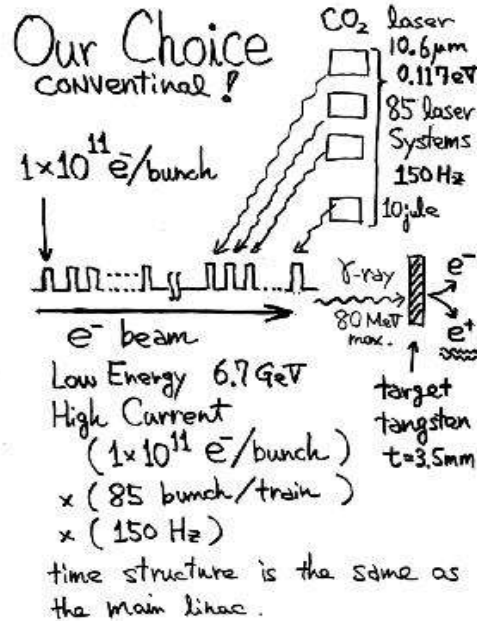 Our Choice
conventinal!
CO₂ laser
10.6μm
0.117eV
85 laser
Systems
150 Hz
10jule
1×10¹¹ e⁻/bunch
e⁻ beam
γ-ray
80 MeV
max.
e⁻
e⁺
target
tangsten
t=3.5mm
Low Energy 6.7 GeV
High Current
(1×10¹¹ e⁻/bunch)
×(85 bunch/train)
×(150 Hz)
time structure is the same as
the main linac.